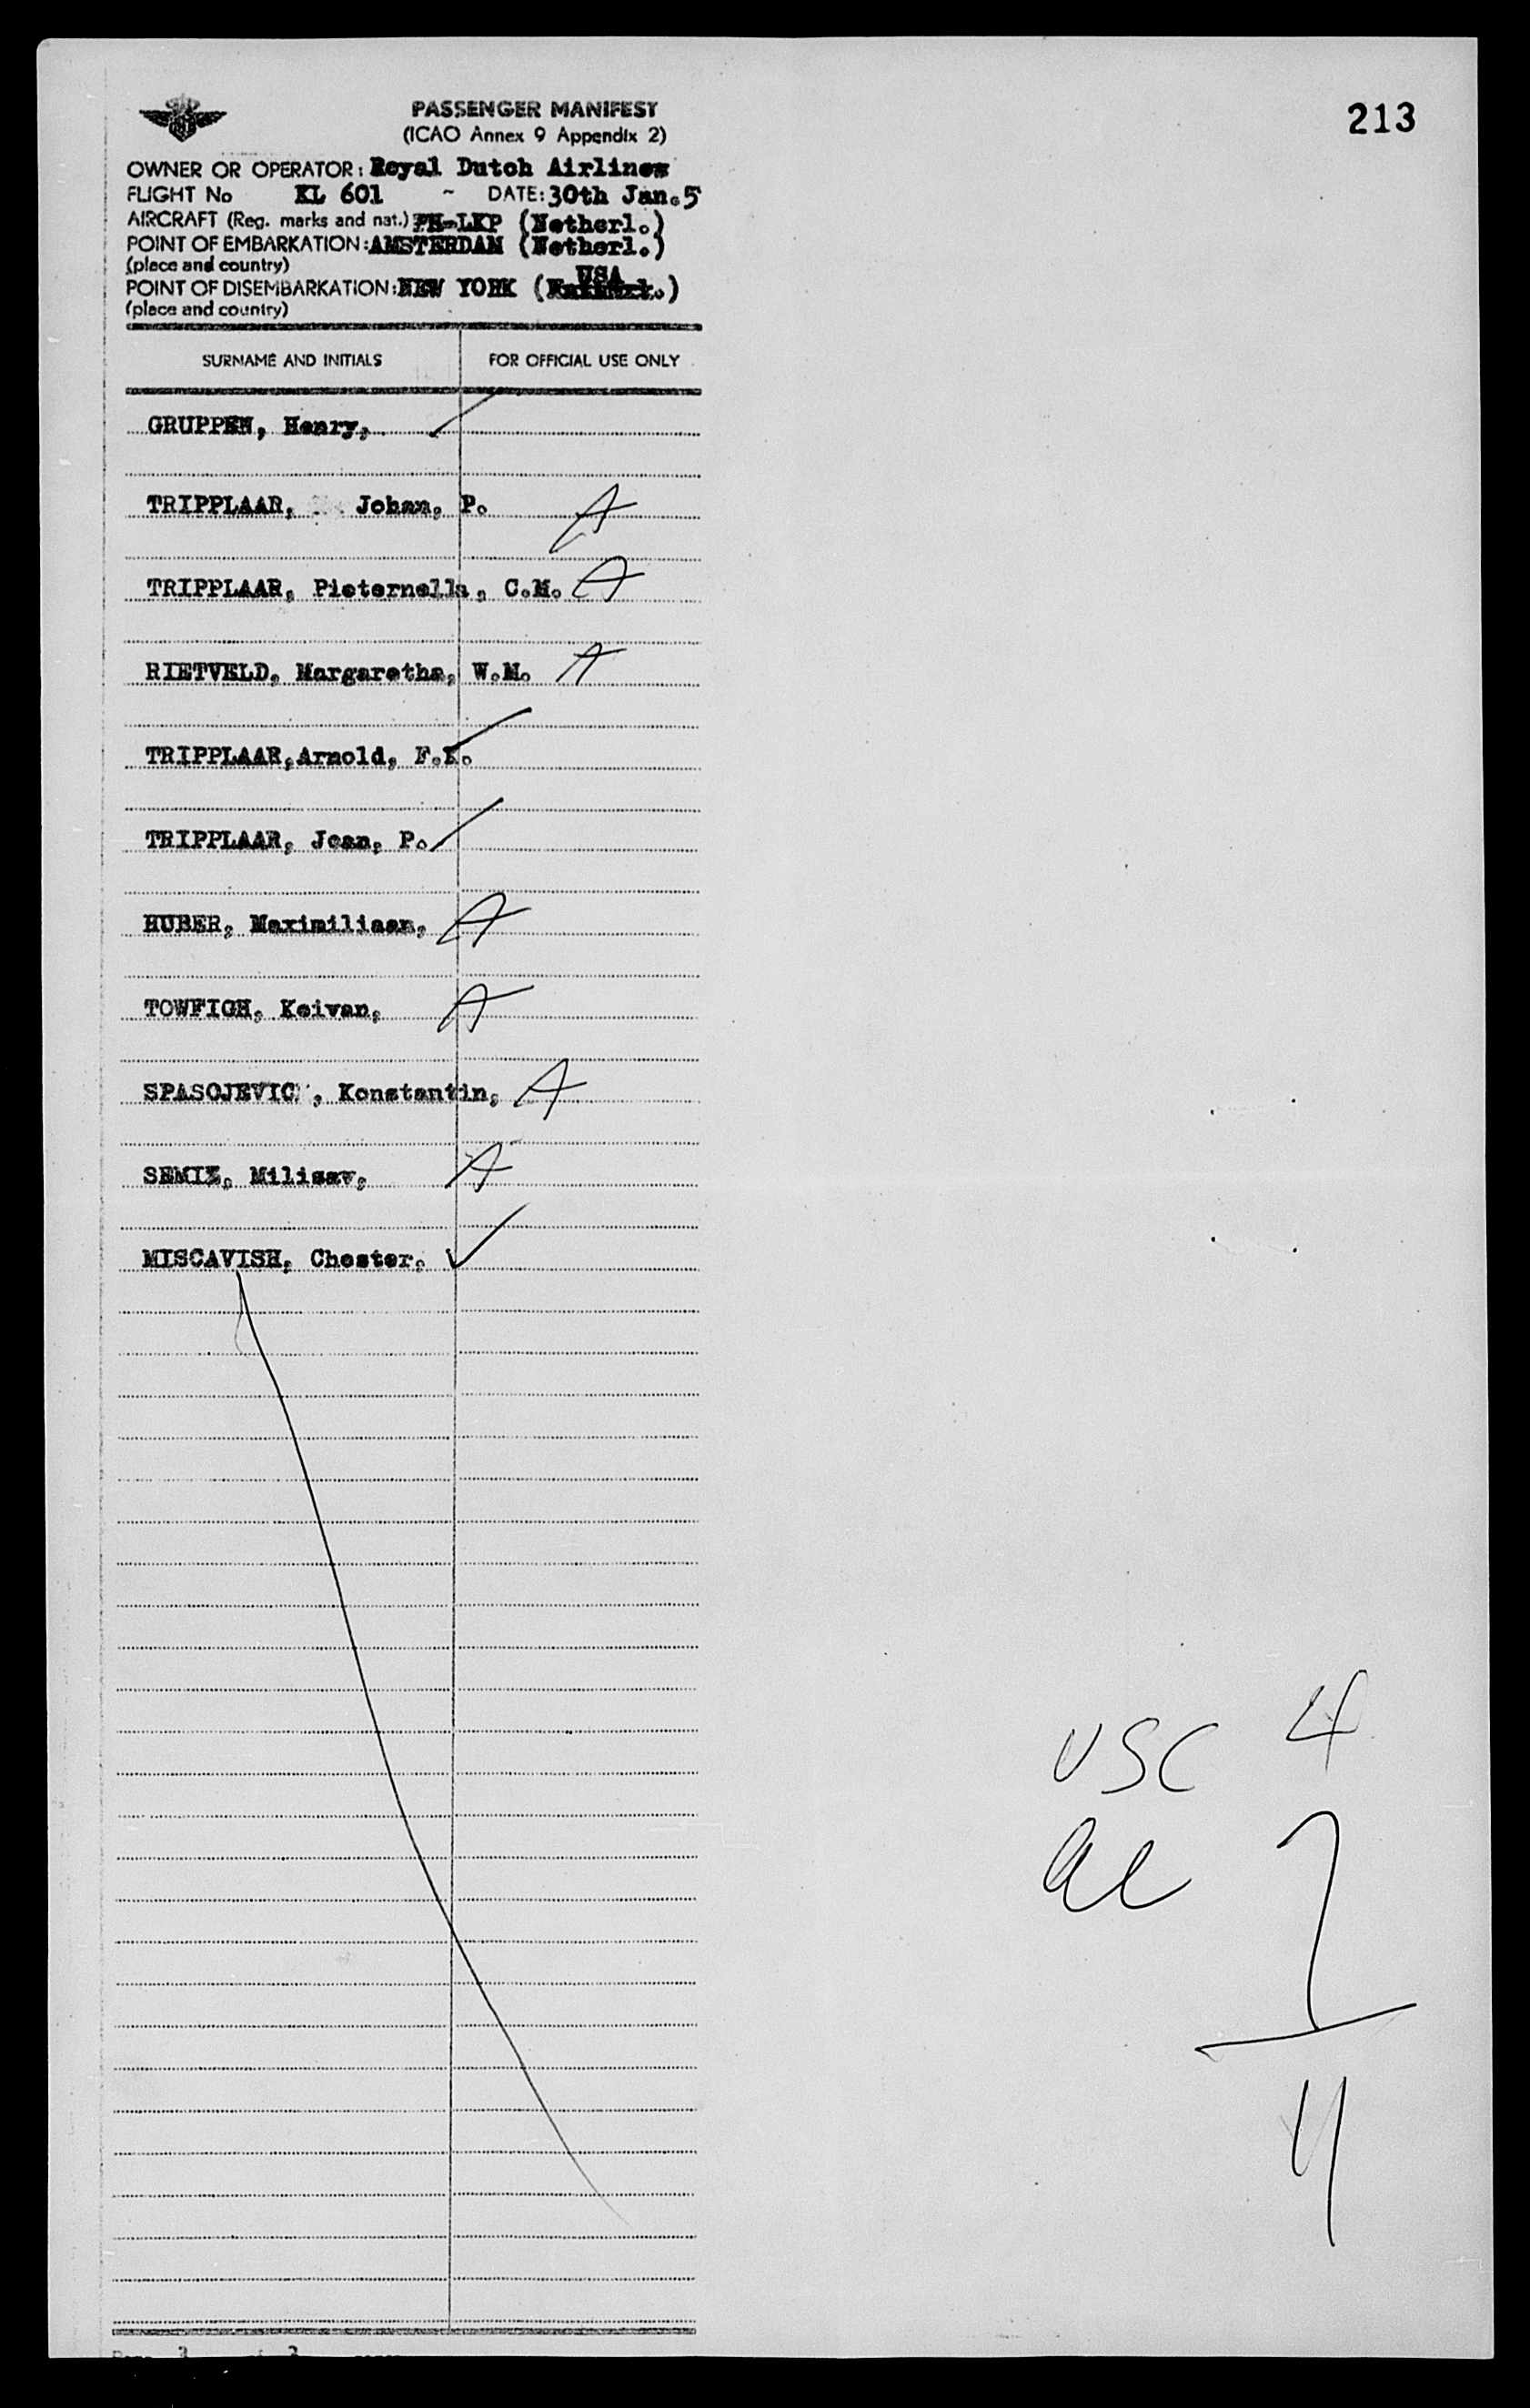 213
PASSENGER MANIFEST
(ICAO Annex 9 Appendix 2)
OWNER OR OPERATOR: Royal Dutch Airlines
FLIGHT No KL 601 - DATE: 30th Jan. 5
AIRCRAFT (Reg. marks and nat.) PH-LKP (Netherl.)
POINT OF EMBARKATION: AMSTERDAM (Netherl.)
(place and country)
USA
POINT OF DISEMBARKATION: NEW YORK
(place and country)
SURNAME AND INITIALS FOR OFFICIAL USE ONLY
GRUPPEN, Henry,
TRIPPLAAR, Johan, P. A
TRIPPLAAR, Pieternella, C.M. A
RIETVELD, Margaretha, W.M. A
TRIPPLAAR, Arnold, F.K.
TRIPPLAAR, Jean, P.
HUBER, Maximiliaan, A
TOWFIGH, Keivan, A
SPASOJEVIC, Konstantin, A
SEMIZ, Milisav, A
MISCAVISH, Chester,
USC 4
al 7
11